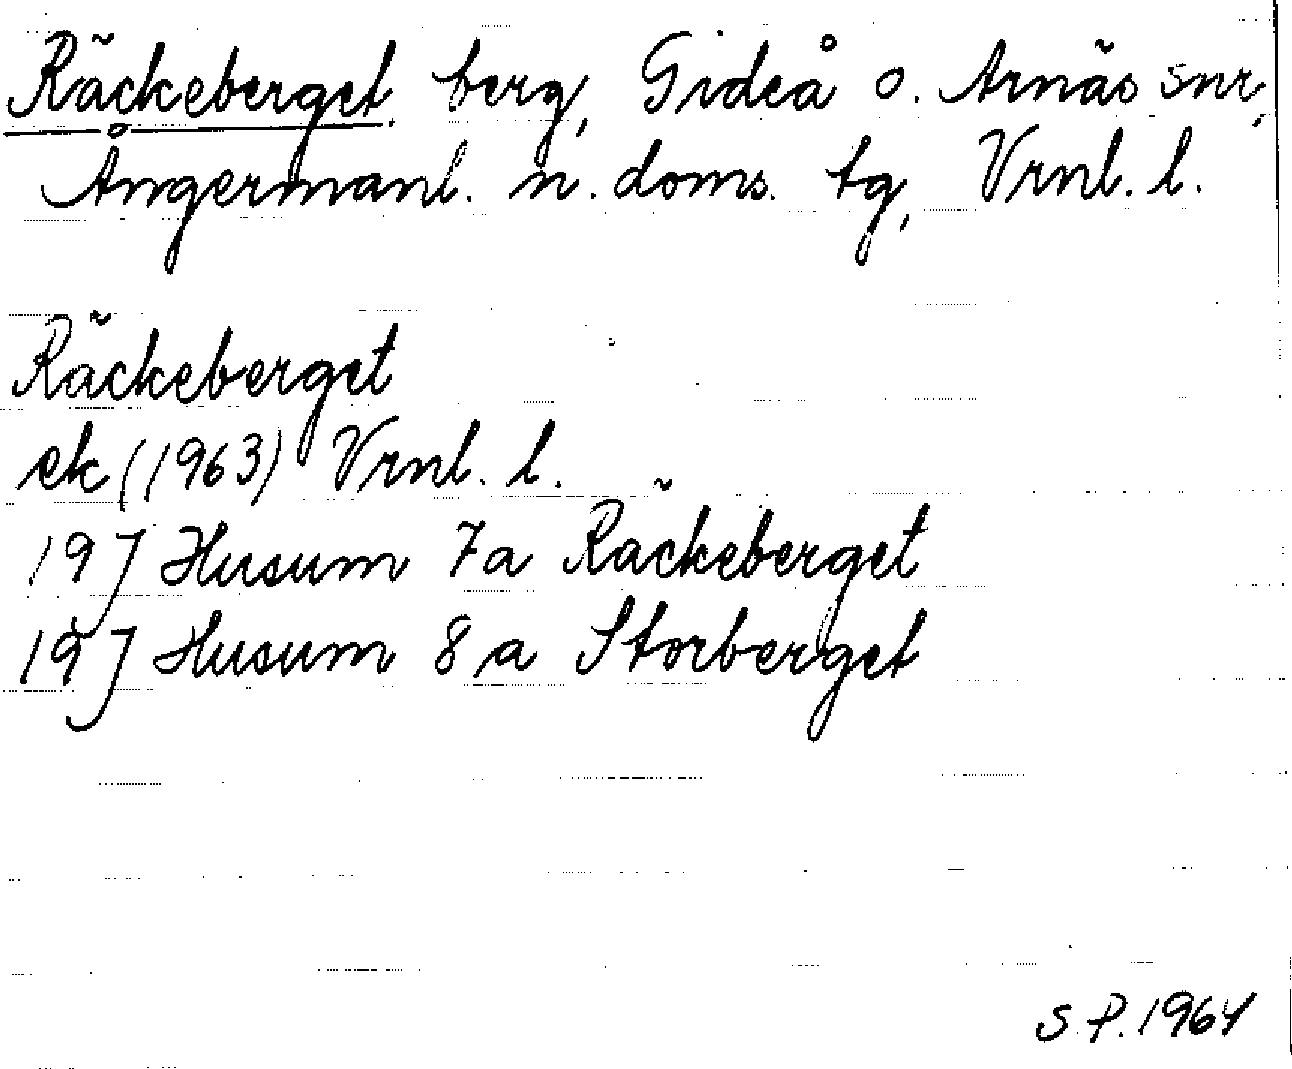 Räckeberget, berg, Gideå o. Arnäs snr,
Ångermanl. n. doms. tg, Vrnl. l.
Räckeberget
ek (1963) Vrnl. l.
19 J Husum 7a Räckeberget
19 J Husum 8a Storberget
S.P. 1964